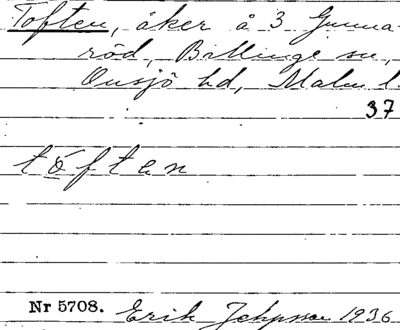 Toften, åker å 3 Gunna-
röd, Billinge sn,
Onsjö hd, Malm l.
37
tóften
Nr 5708. Erik Jeppsson 1936